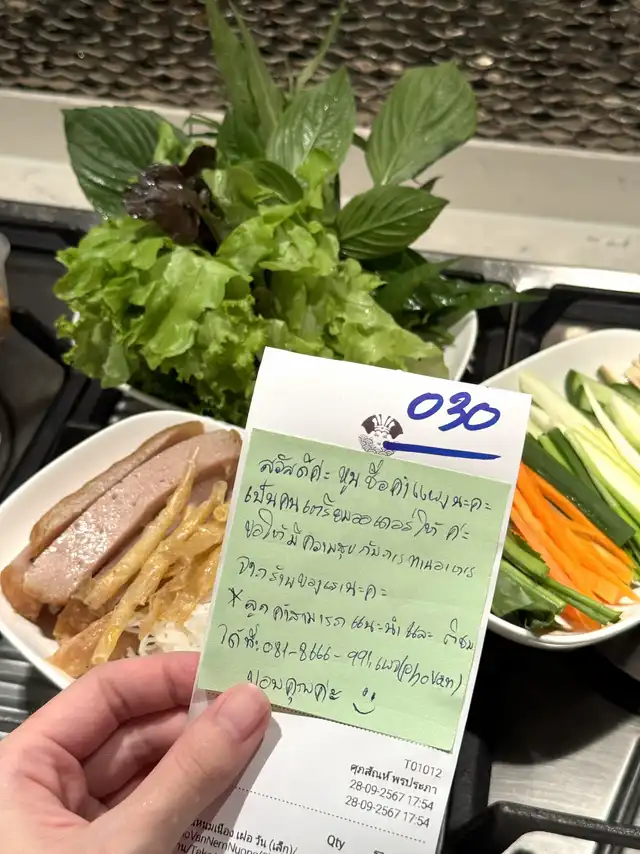 030
สวัสดีค่ะ หนูชื่อคำแพงนะคะ
เป็นคนเตรียมออเดอร์ให้ ค่ะ
ขอให้มีความสุขกับการทานอาหาร
จากร้านของเรานะคะ
* ลูกค้าสามารถแนะนำและ ติชม
ได้ที่. 081-8666-991, เพจ(phoVan)
ขอบคุณค่ะ
T01012
ศุภสัณห์ พรประภา
28-09-2567 17:54
28-09-2567 17:54
แหนมเนือง เฝอ วัน (เล็ก)/
Qty